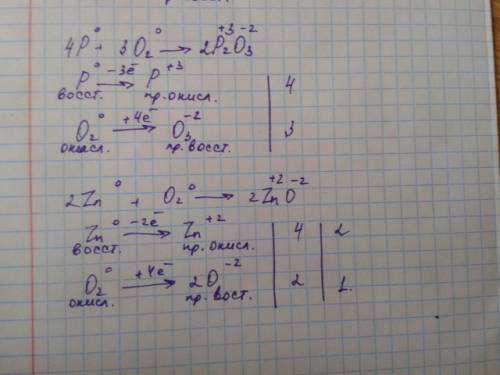 4P⁰ + 3O₂⁰ → 2P₂⁺³O₃⁻²
P⁰ −3ē → P⁺³ | 4
восст. пр. окисл.
O₂⁰ +4ē → O₃⁻² | 3
окисл. пр. восст.
2Zn⁰ + O₂⁰ → 2Zn⁺²O⁻²
Zn⁰ −2ē → Zn⁺² | 4 | 2
восст. пр. окисл.
O₂⁰ +4ē → 2O⁻² | 2 | 1.
окисл. пр. вост.